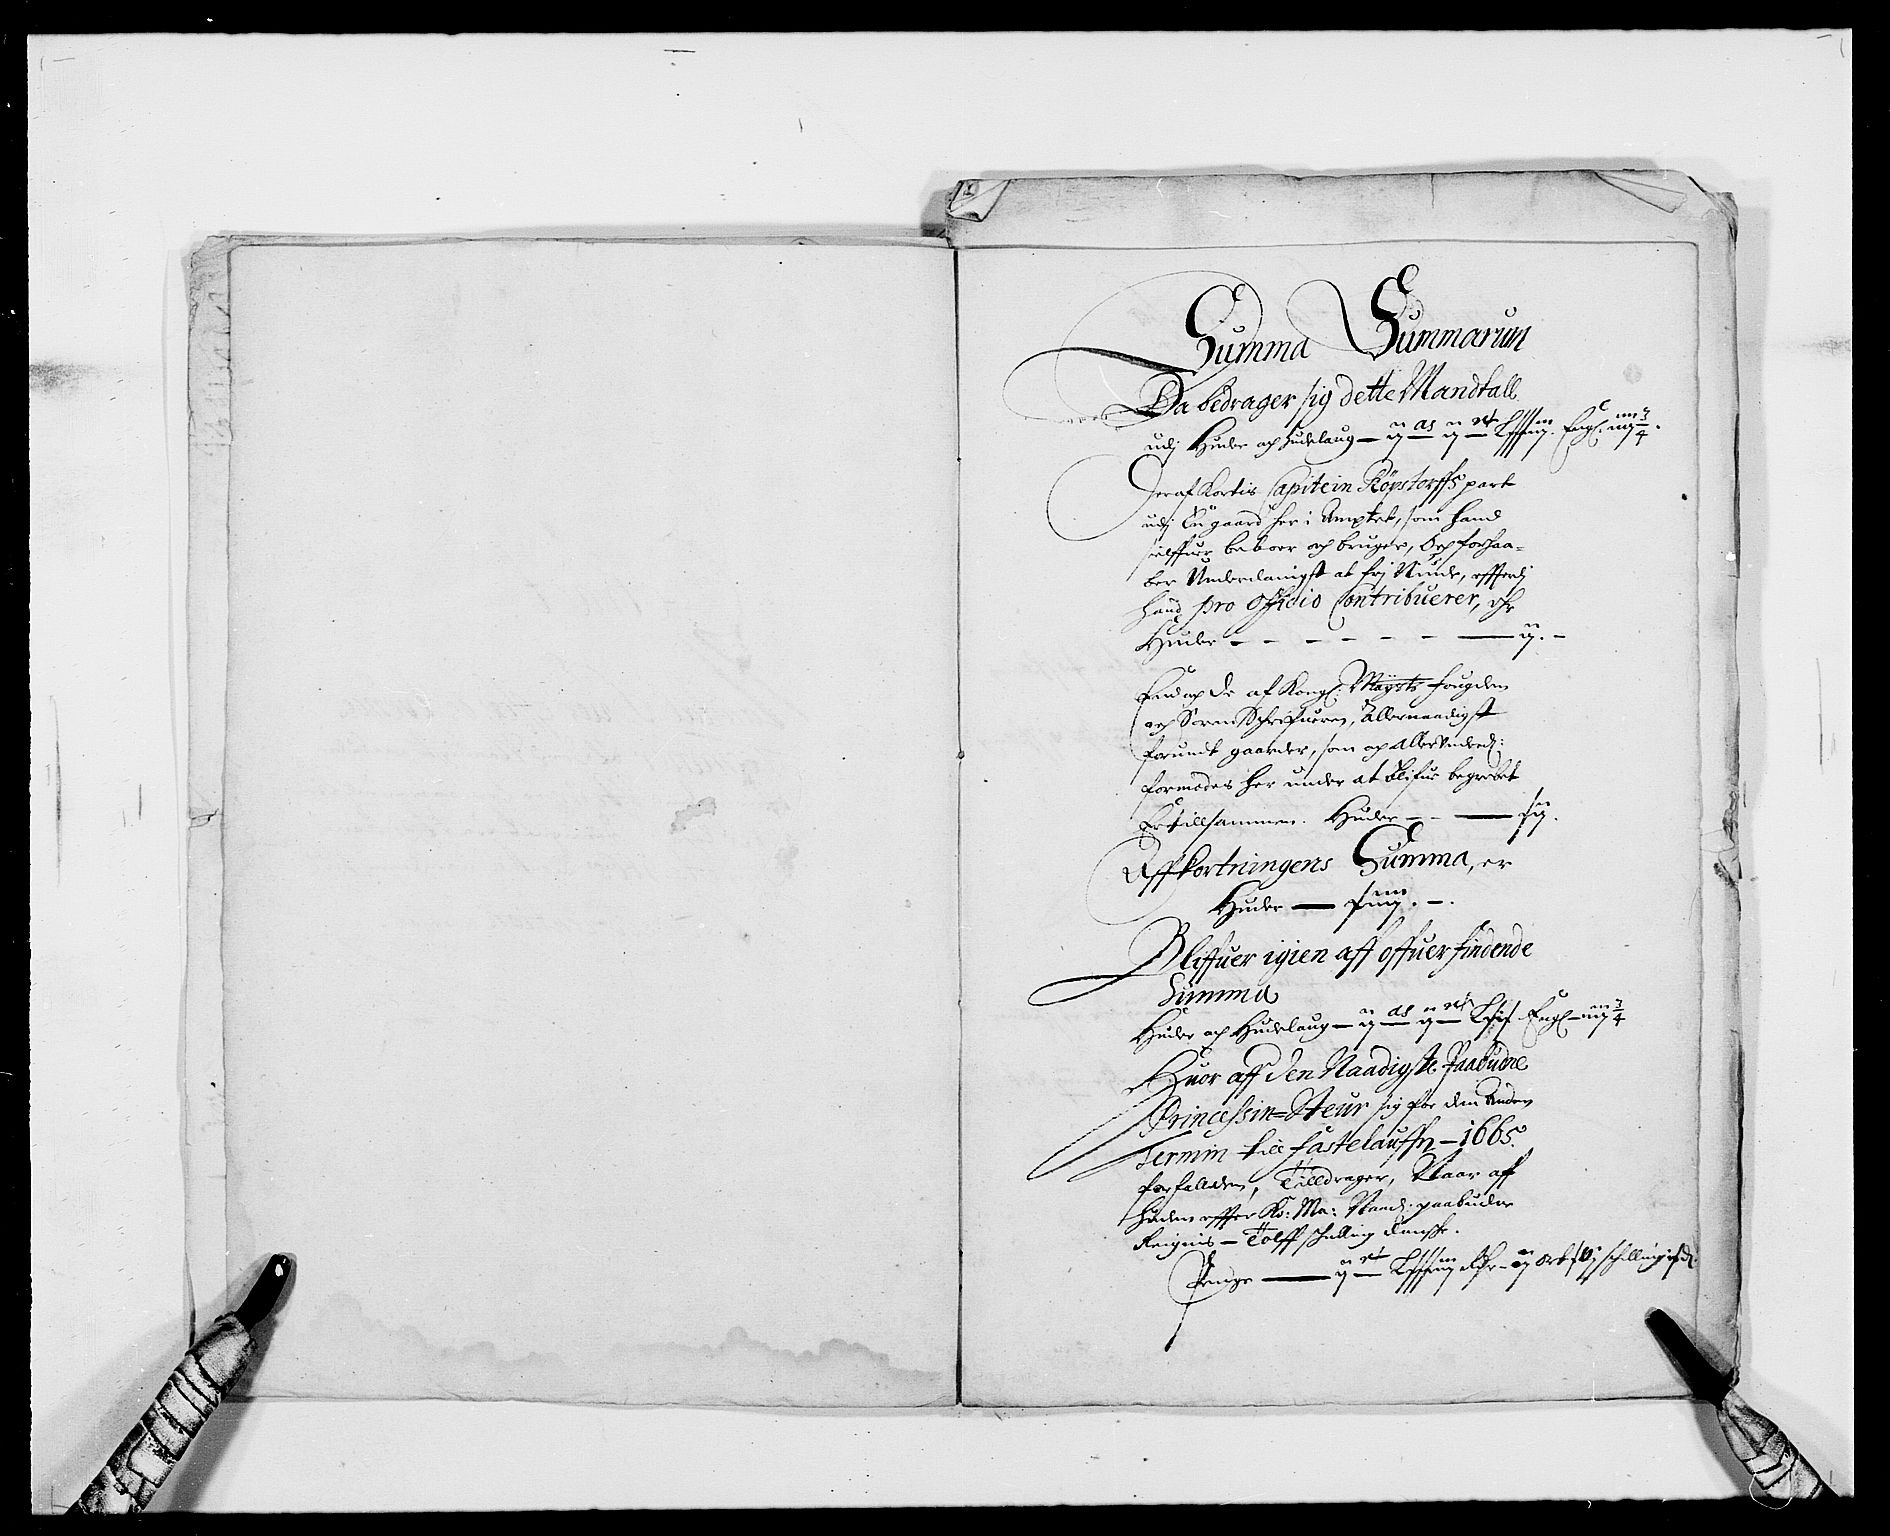 Summa Summarum
Da bedrager sig dette Mandtall
udj Huder och Hudelaug — ij — ij — Engl: iiij 3/4.
Deraf Kortis Capitein Röpstorffs part
udj gaard her i Amptet, som hand
sielffuer beboer och bruger, och forhaa-
ber Underdanigst at frj Niude, effterdj
hand pro Officio Contribuerer, Er
Huder - - - - - - — ij. -
End och de af Kongl: Mayts fougden
och Soren Schrifueren, Allernaadigst
forundt gaarder, som og Allerunderd:
formodes her under at blifue begrebet
Er tillsammen. Huder - - —
Affkortningens Summa, er
Huder —
Bliffuer igien aff offuerfindende
Summa
Huder och Hudelaug — ij — ij — Engl — iiij 3/4
Huor aff den Naadigste Paabudne
Princessin=Steur sig for den Anden
Termin till fastelauffn — 1665.
forfalden, Tilldrager, Naar aff
huden effter Ko: Ma: Naad: paabudne
Reignis — Tolff schilling danske.
Penge — ij — ort schilling